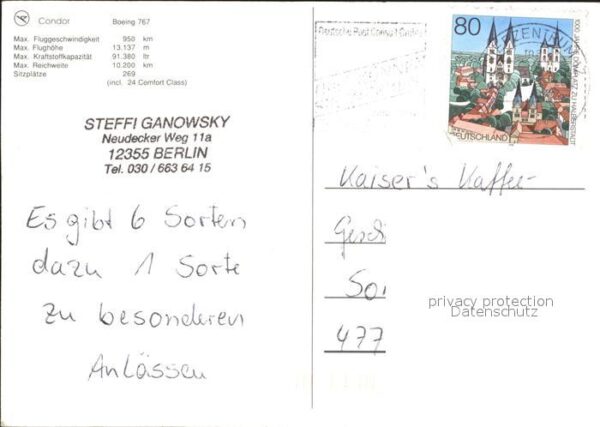 Condor Boeing 767
Max. Fluggeschwindigkeit 950 km
Max. Flughöhe 13.137 m
Max. Kraftstoffkapazität 91.380 ltr
Max. Reichweite 10.200 km
Sitzplätze 269
(incl. 24 Comfort Class)
STEFFI GANOWSKY
Neudecker Weg 11a
12355 BERLIN
Tel. 030 / 663 64 15
Es gibt 6 Sorten
dazu 1 Sorte
zu besonderen
Anlässen
Deutsche Post
ZENTRUM
80
1000 JAHRE DOMPLATZ ZU HALBERSTADT
DEUTSCHLAND
Kaiser's Kaffee-
Gesch
Son
477
privacy protection
Datenschutz